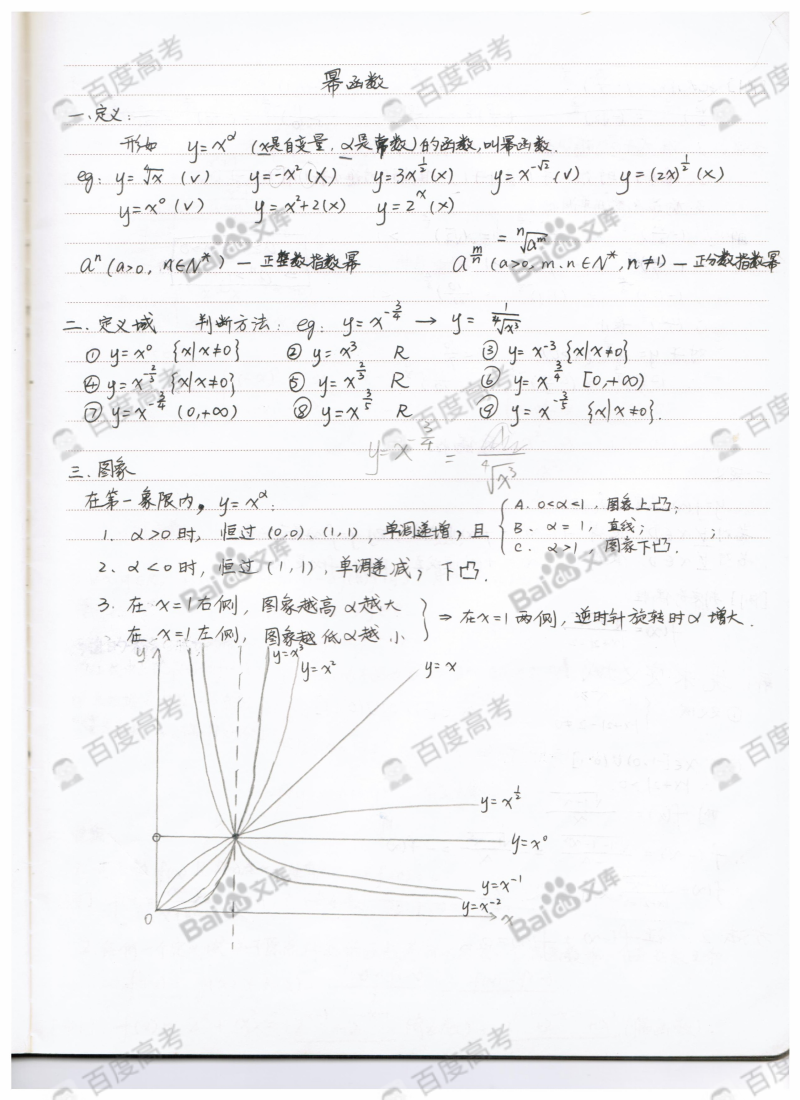 幂函数
一、定义：
形如 y=x^α (x是自变量，α是常数)的函数,叫幂函数.
eg: y=⁴√x (√) y=-x² (×) y=3x^{1/2} (×) y=x^{-√2} (√) y=(2x)^{1/2} (×)
y=x⁰ (√) y=x²+2 (×) y=2^x (×)
aⁿ (a>0, n∈N*) — 正整数指数幂 a^{m/n} = ⁿ√a^m (a>0, m.n∈N*, n≠1) — 正分数指数幂
二、定义域 判断方法: eg: y=x^{-3/4} → y= 1/⁴√x³
① y=x⁰ {x|x≠0} ② y=x³ R ③ y=x^{-3} {x|x≠0}
④ y=x^{-2/3} {x|x≠0} ⑤ y=x^{2/3} R ⑥ y=x^{3/4} [0,+∞)
⑦ y=x^{-3/4} (0,+∞) ⑧ y=x^{3/5} R ⑨ y=x^{-3/5} {x|x≠0}.
y=x^{-3/4} = /⁴√x³
三、图象
在第一象限内, y=x^α:
1. α>0时, 恒过(0,0)、(1,1), 单调递增, 且
A. 0<α<1, 图象上凸;
B、α=1, 直线;
C、α>1, 图象下凸. ;
2、α<0时, 恒过(1,1), 单调递减, 下凸.
3. 在x=1右侧, 图象越高α越大
在x=1左侧, 图象越低α越小
⇒ 在x=1两侧, 逆时针旋转时α增大.
y
y=x³
y=x²
y=x
y=x^{1/2}
y=x⁰
y=x^{-1}
y=x^{-2}
0
x
百度高考
Baidu文库